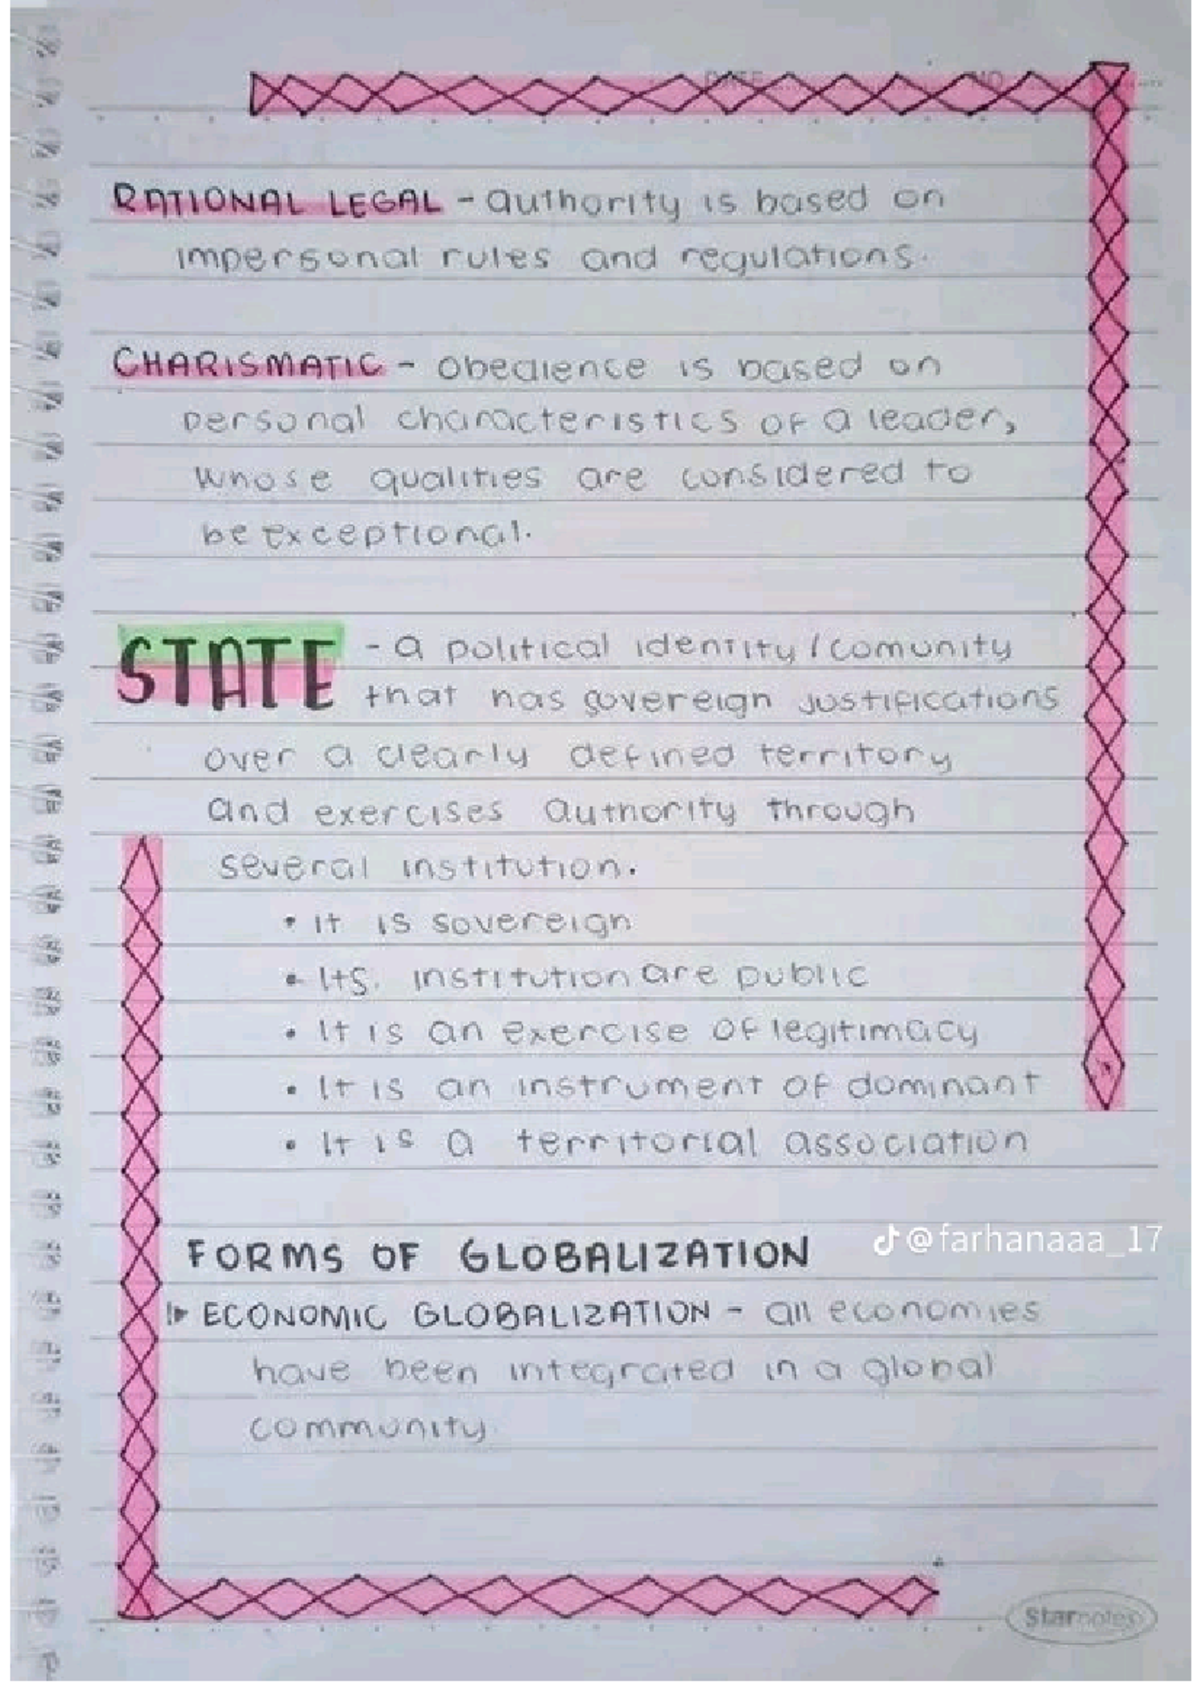 DATE NO
RATIONAL LEGAL - authority is based on
impersonal rules and regulations.
CHARISMATIC - obedience is based on
personal characteristics of a leader,
whose qualities are considered to
be exceptional.
STATE - a political identity / comunity
that has sovereign justifications
over a clearly defined territory
and exercises authority through
several institution.
• It is sovereign
• Its. institution are public
• It is an exercise of legitimacy
• It is an instrument of dominant
• It is a territorial association
@farhanaaa_17
FORMS OF GLOBALIZATION
ECONOMIC GLOBALIZATION - all economies
have been integrated in a global
community
Starnotes